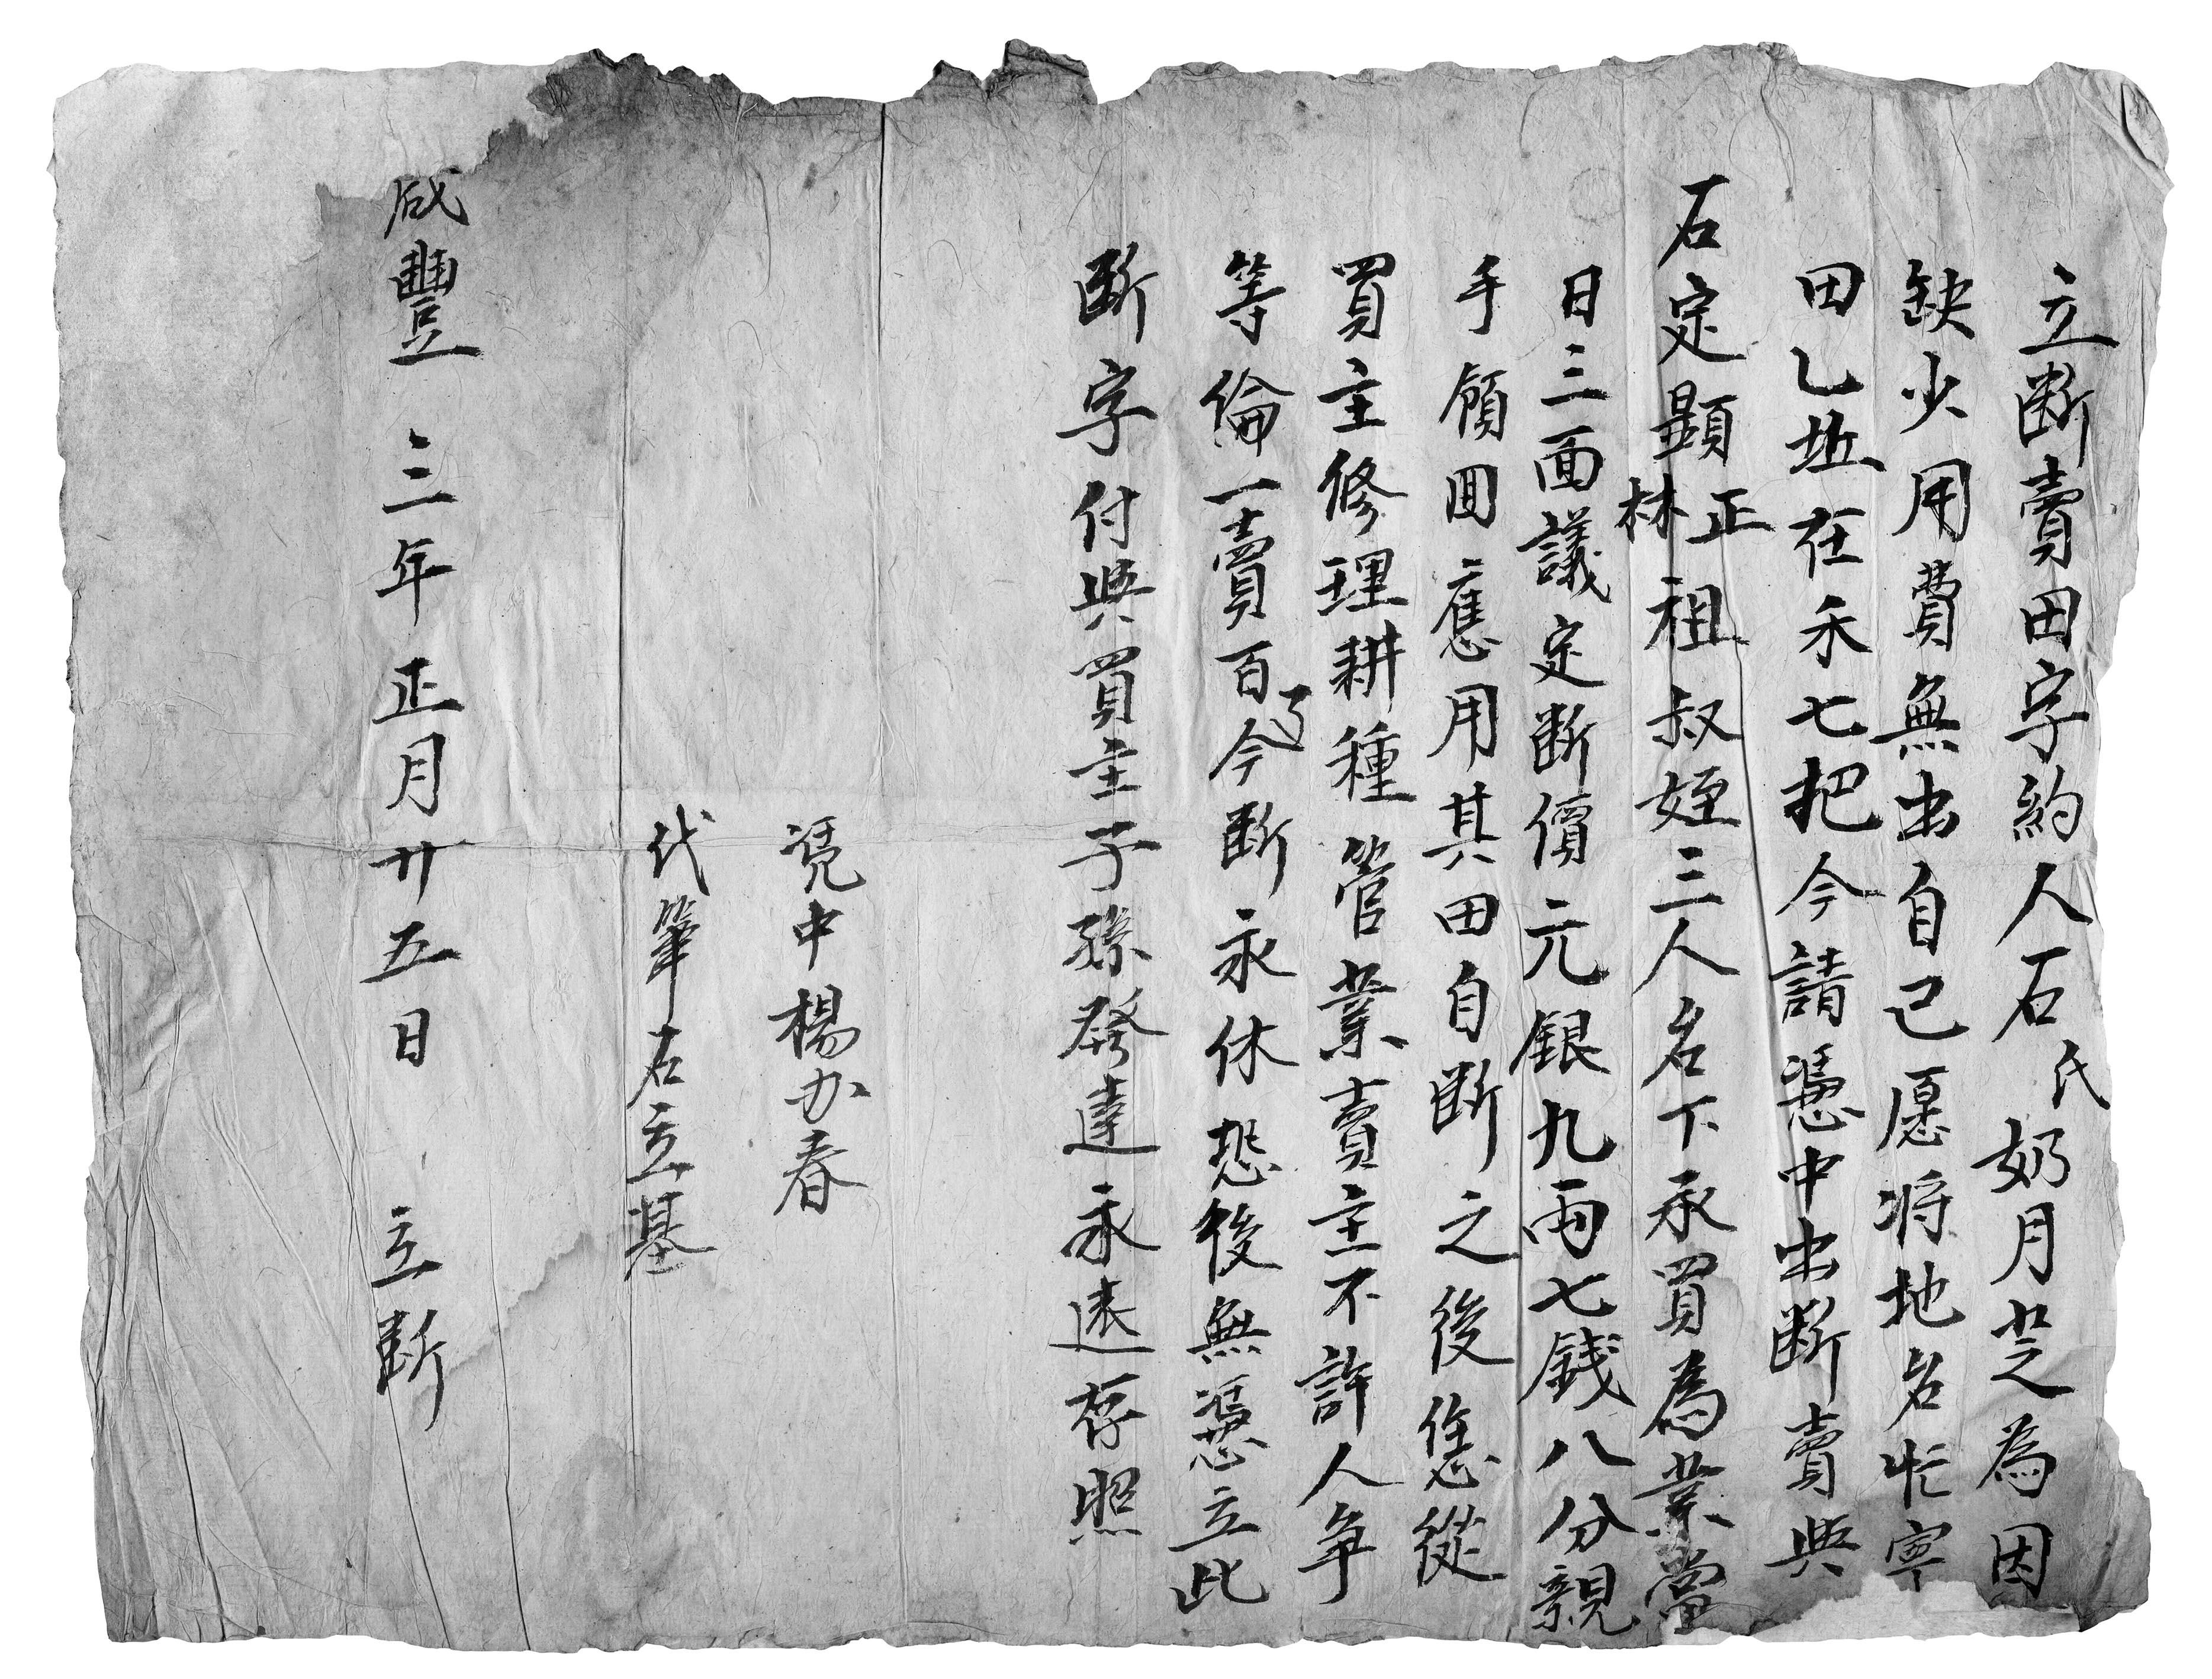 立断賣田字約人石氏奶月芝為因
缺少用費無出自己愿将地名忙寕
田乚坵在禾七把今請憑中出断賣與
石定顯正林祖叔姪三人名下承買為業當
日三面議定断價元銀九兩七銭八分親
手領囬應用其田自断之後恁從
買主修理耕種管業賣主不許人争
等倫一賣百了今断永休恐後無憑立此
断字付與買主子孫發達永遠存照
凴中楊办春
代筆石立基
咸豐三年正月廿五日 立断